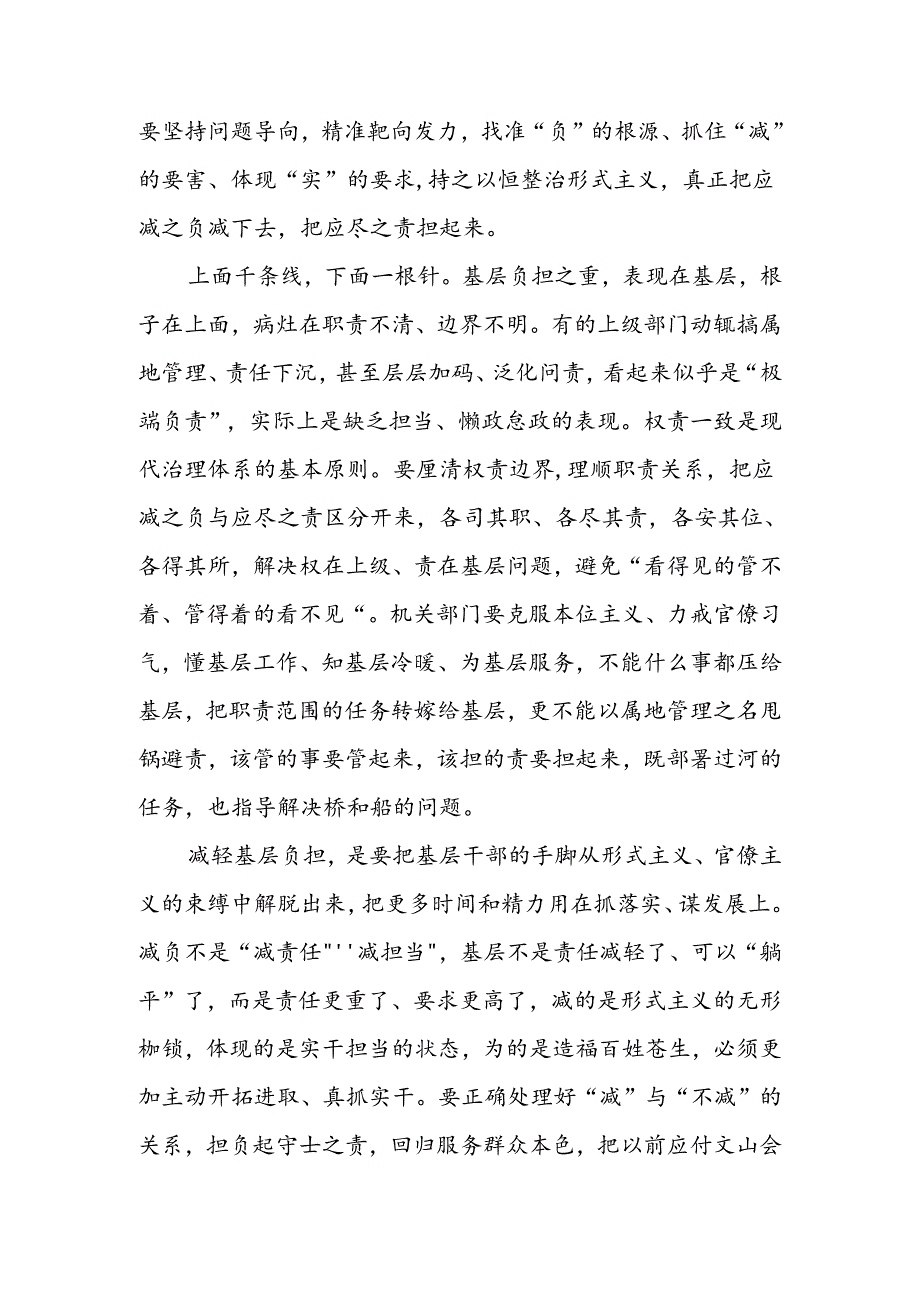 要坚持问题导向，精准靶向发力，找准“负”的根源、抓住“减”
的要害、体现“实”的要求,持之以恒整治形式主义，真正把应
减之负减下去，把应尽之责担起来。
上面千条线，下面一根针。基层负担之重，表现在基层，根
子在上面，病灶在职责不清、边界不明。有的上级部门动辄搞属
地管理、责任下沉，甚至层层加码、泛化问责，看起来似乎是“极
端负责”，实际上是缺乏担当、懒政怠政的表现。权责一致是现
代治理体系的基本原则。要厘清权责边界,理顺职责关系，把应
减之负与应尽之责区分开来，各司其职、各尽其责，各安其位、
各得其所，解决权在上级、责在基层问题，避免“看得见的管不
着、管得着的看不见“。机关部门要克服本位主义、力戒官僚习
气，懂基层工作、知基层冷暖、为基层服务，不能什么事都压给
基层，把职责范围的任务转嫁给基层，更不能以属地管理之名甩
锅避责，该管的事要管起来，该担的责要担起来，既部署过河的
任务，也指导解决桥和船的问题。
减轻基层负担，是要把基层干部的手脚从形式主义、官僚主
义的束缚中解脱出来,把更多时间和精力用在抓落实、谋发展上。
减负不是“减责任"''减担当"，基层不是责任减轻了、可以“躺
平”了，而是责任更重了、要求更高了，减的是形式主义的无形
枷锁，体现的是实干担当的状态，为的是造福百姓苍生，必须更
加主动开拓进取、真抓实干。要正确处理好“减”与“不减”的
关系，担负起守士之责，回归服务群众本色，把以前应付文山会